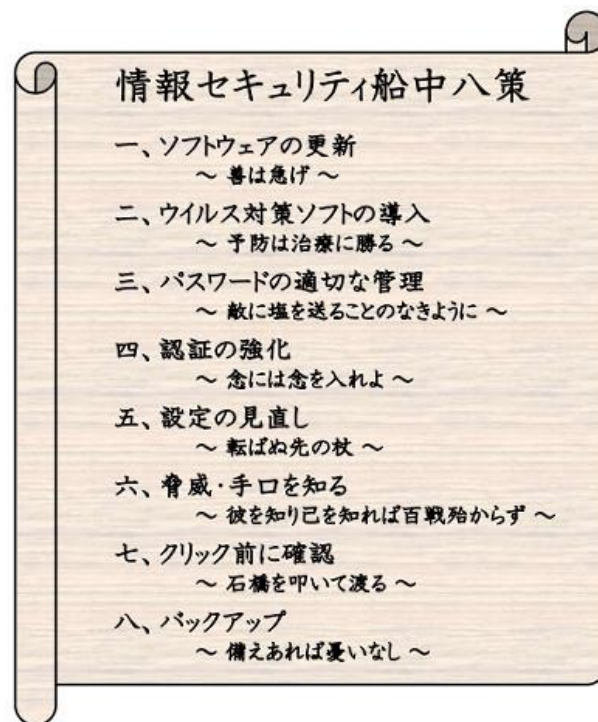 情報セキュリティ船中八策
一、ソフトウェアの更新
～ 善は急げ ～
二、ウイルス対策ソフトの導入
～ 予防は治療に勝る ～
三、パスワードの適切な管理
～ 敵に塩を送ることのなきように ～
四、認証の強化
～ 念には念を入れよ ～
五、設定の見直し
～ 転ばぬ先の杖 ～
六、脅威・手口を知る
～ 彼を知り己を知れば百戦殆からず ～
七、クリック前に確認
～ 石橋を叩いて渡る ～
八、バックアップ
～ 備えあれば憂いなし ～